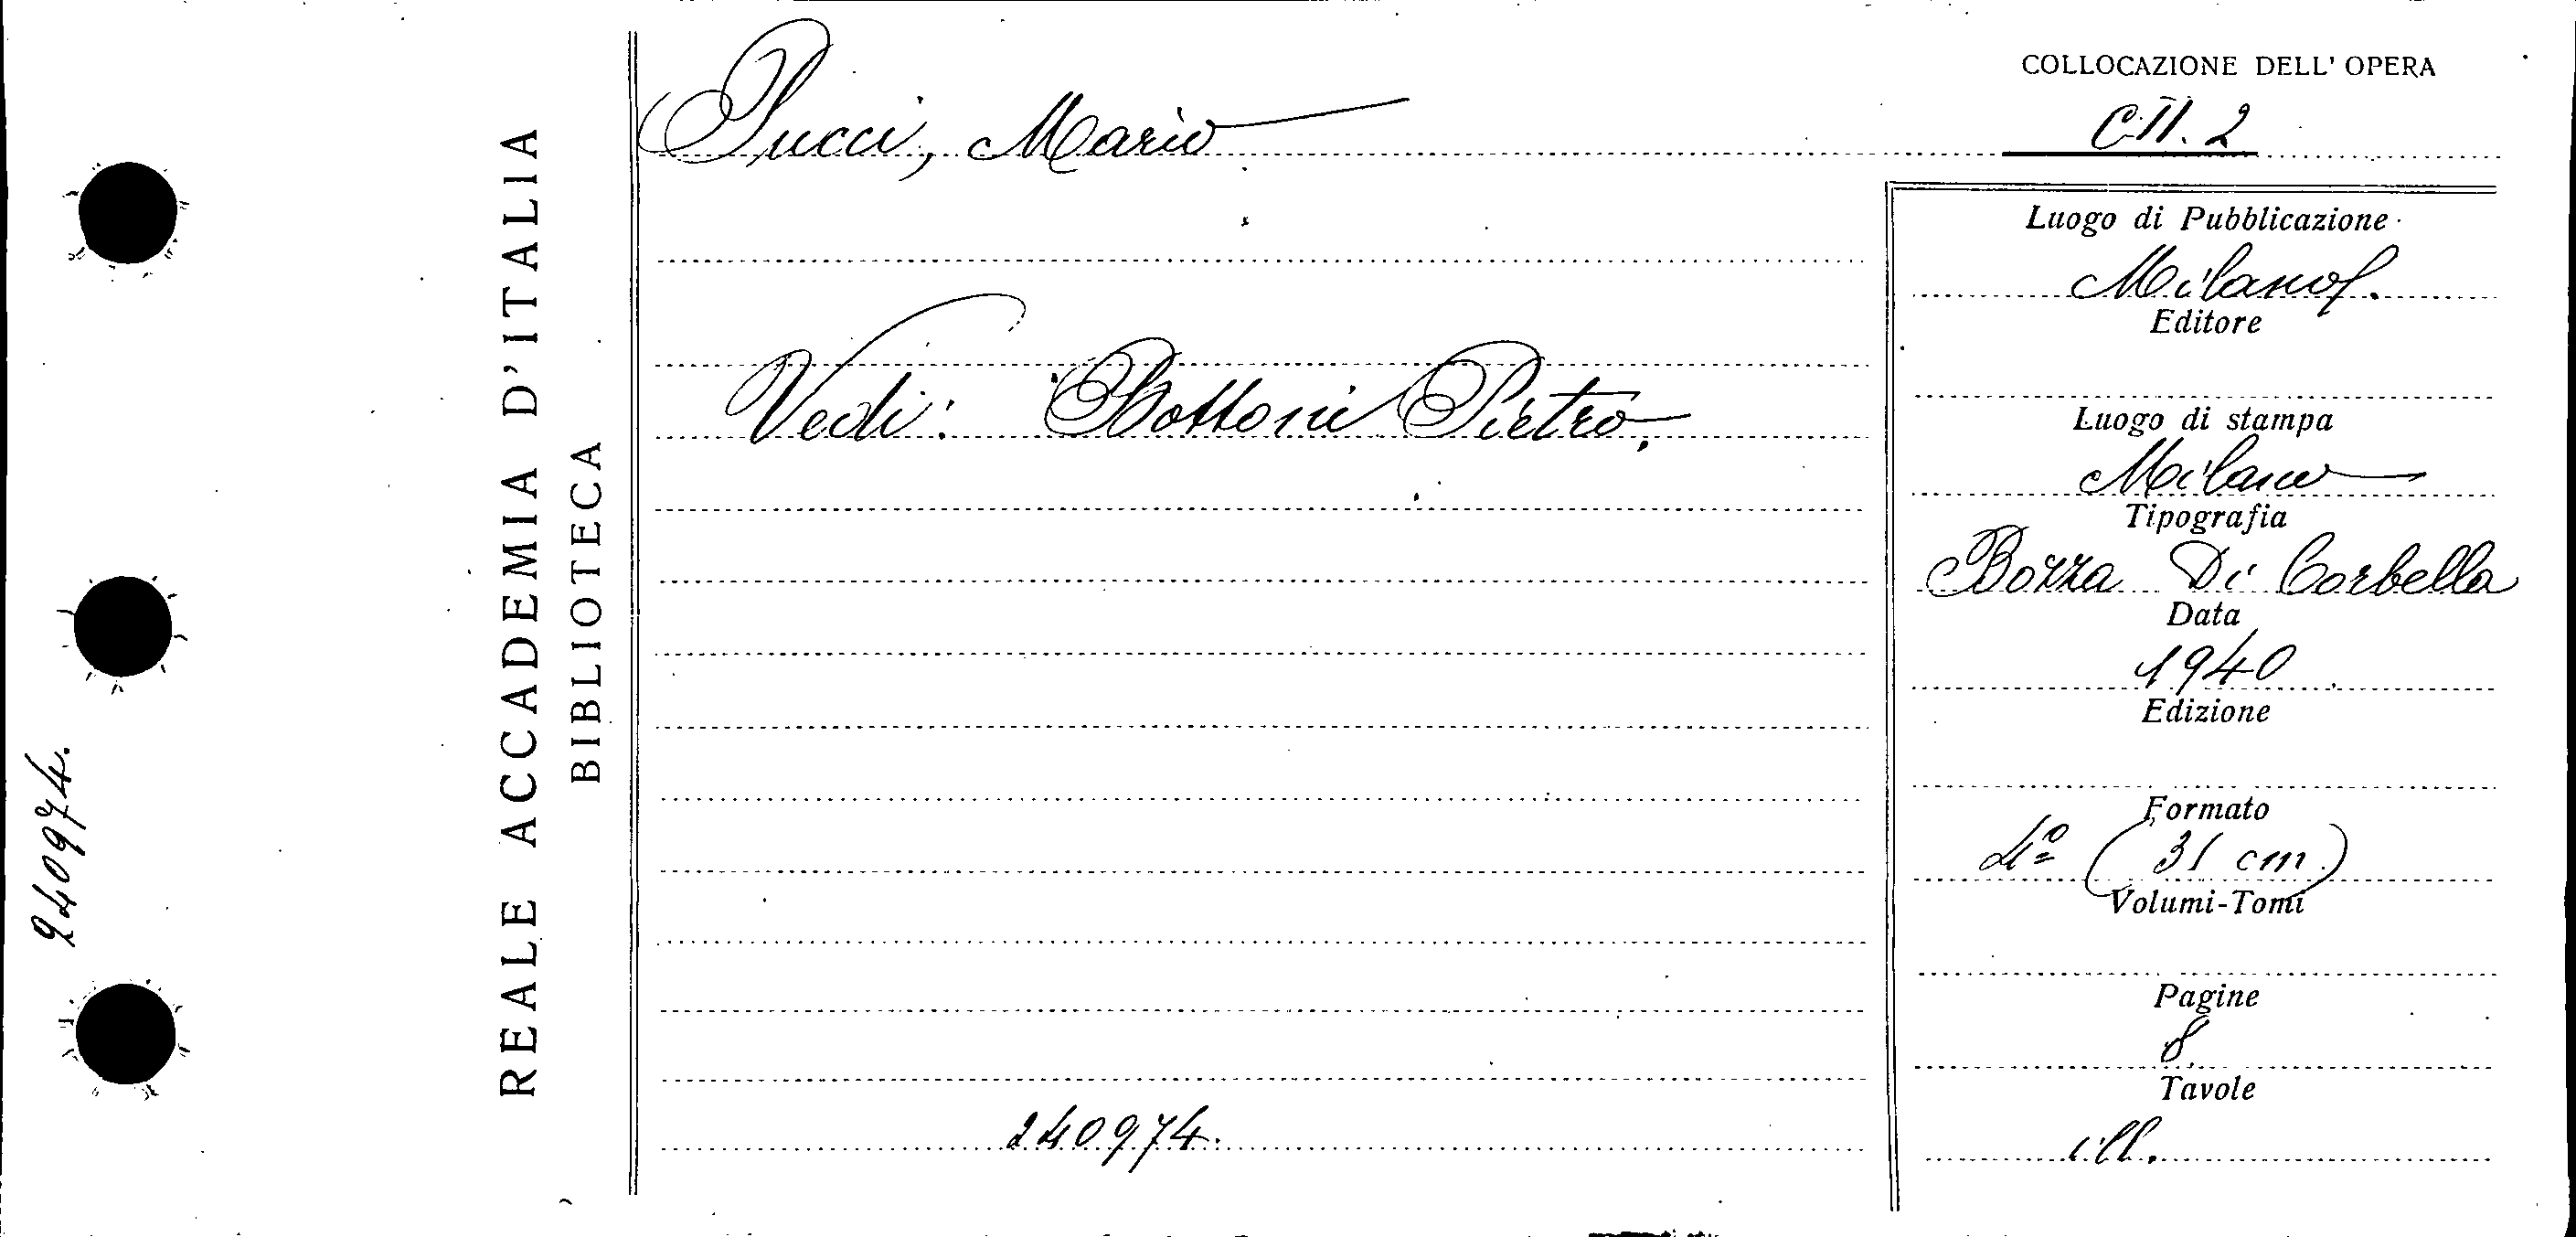 240974.
REALE ACCADEMIA D'ITALIA
BIBLIOTECA
Pucci, Mario
Vedi: Bottoni Pietro.
240974.
COLLOCAZIONE DELL' OPERA
C.II.2
Luogo di Pubblicazione
Milano.
Editore
Luogo di stampa
Milano
Tipografia
Bozza Di Corbella
Data
1940
Edizione
Formato
4º (31 cm)
Volumi-Tomi
Pagine
8.
Tavole
ill.